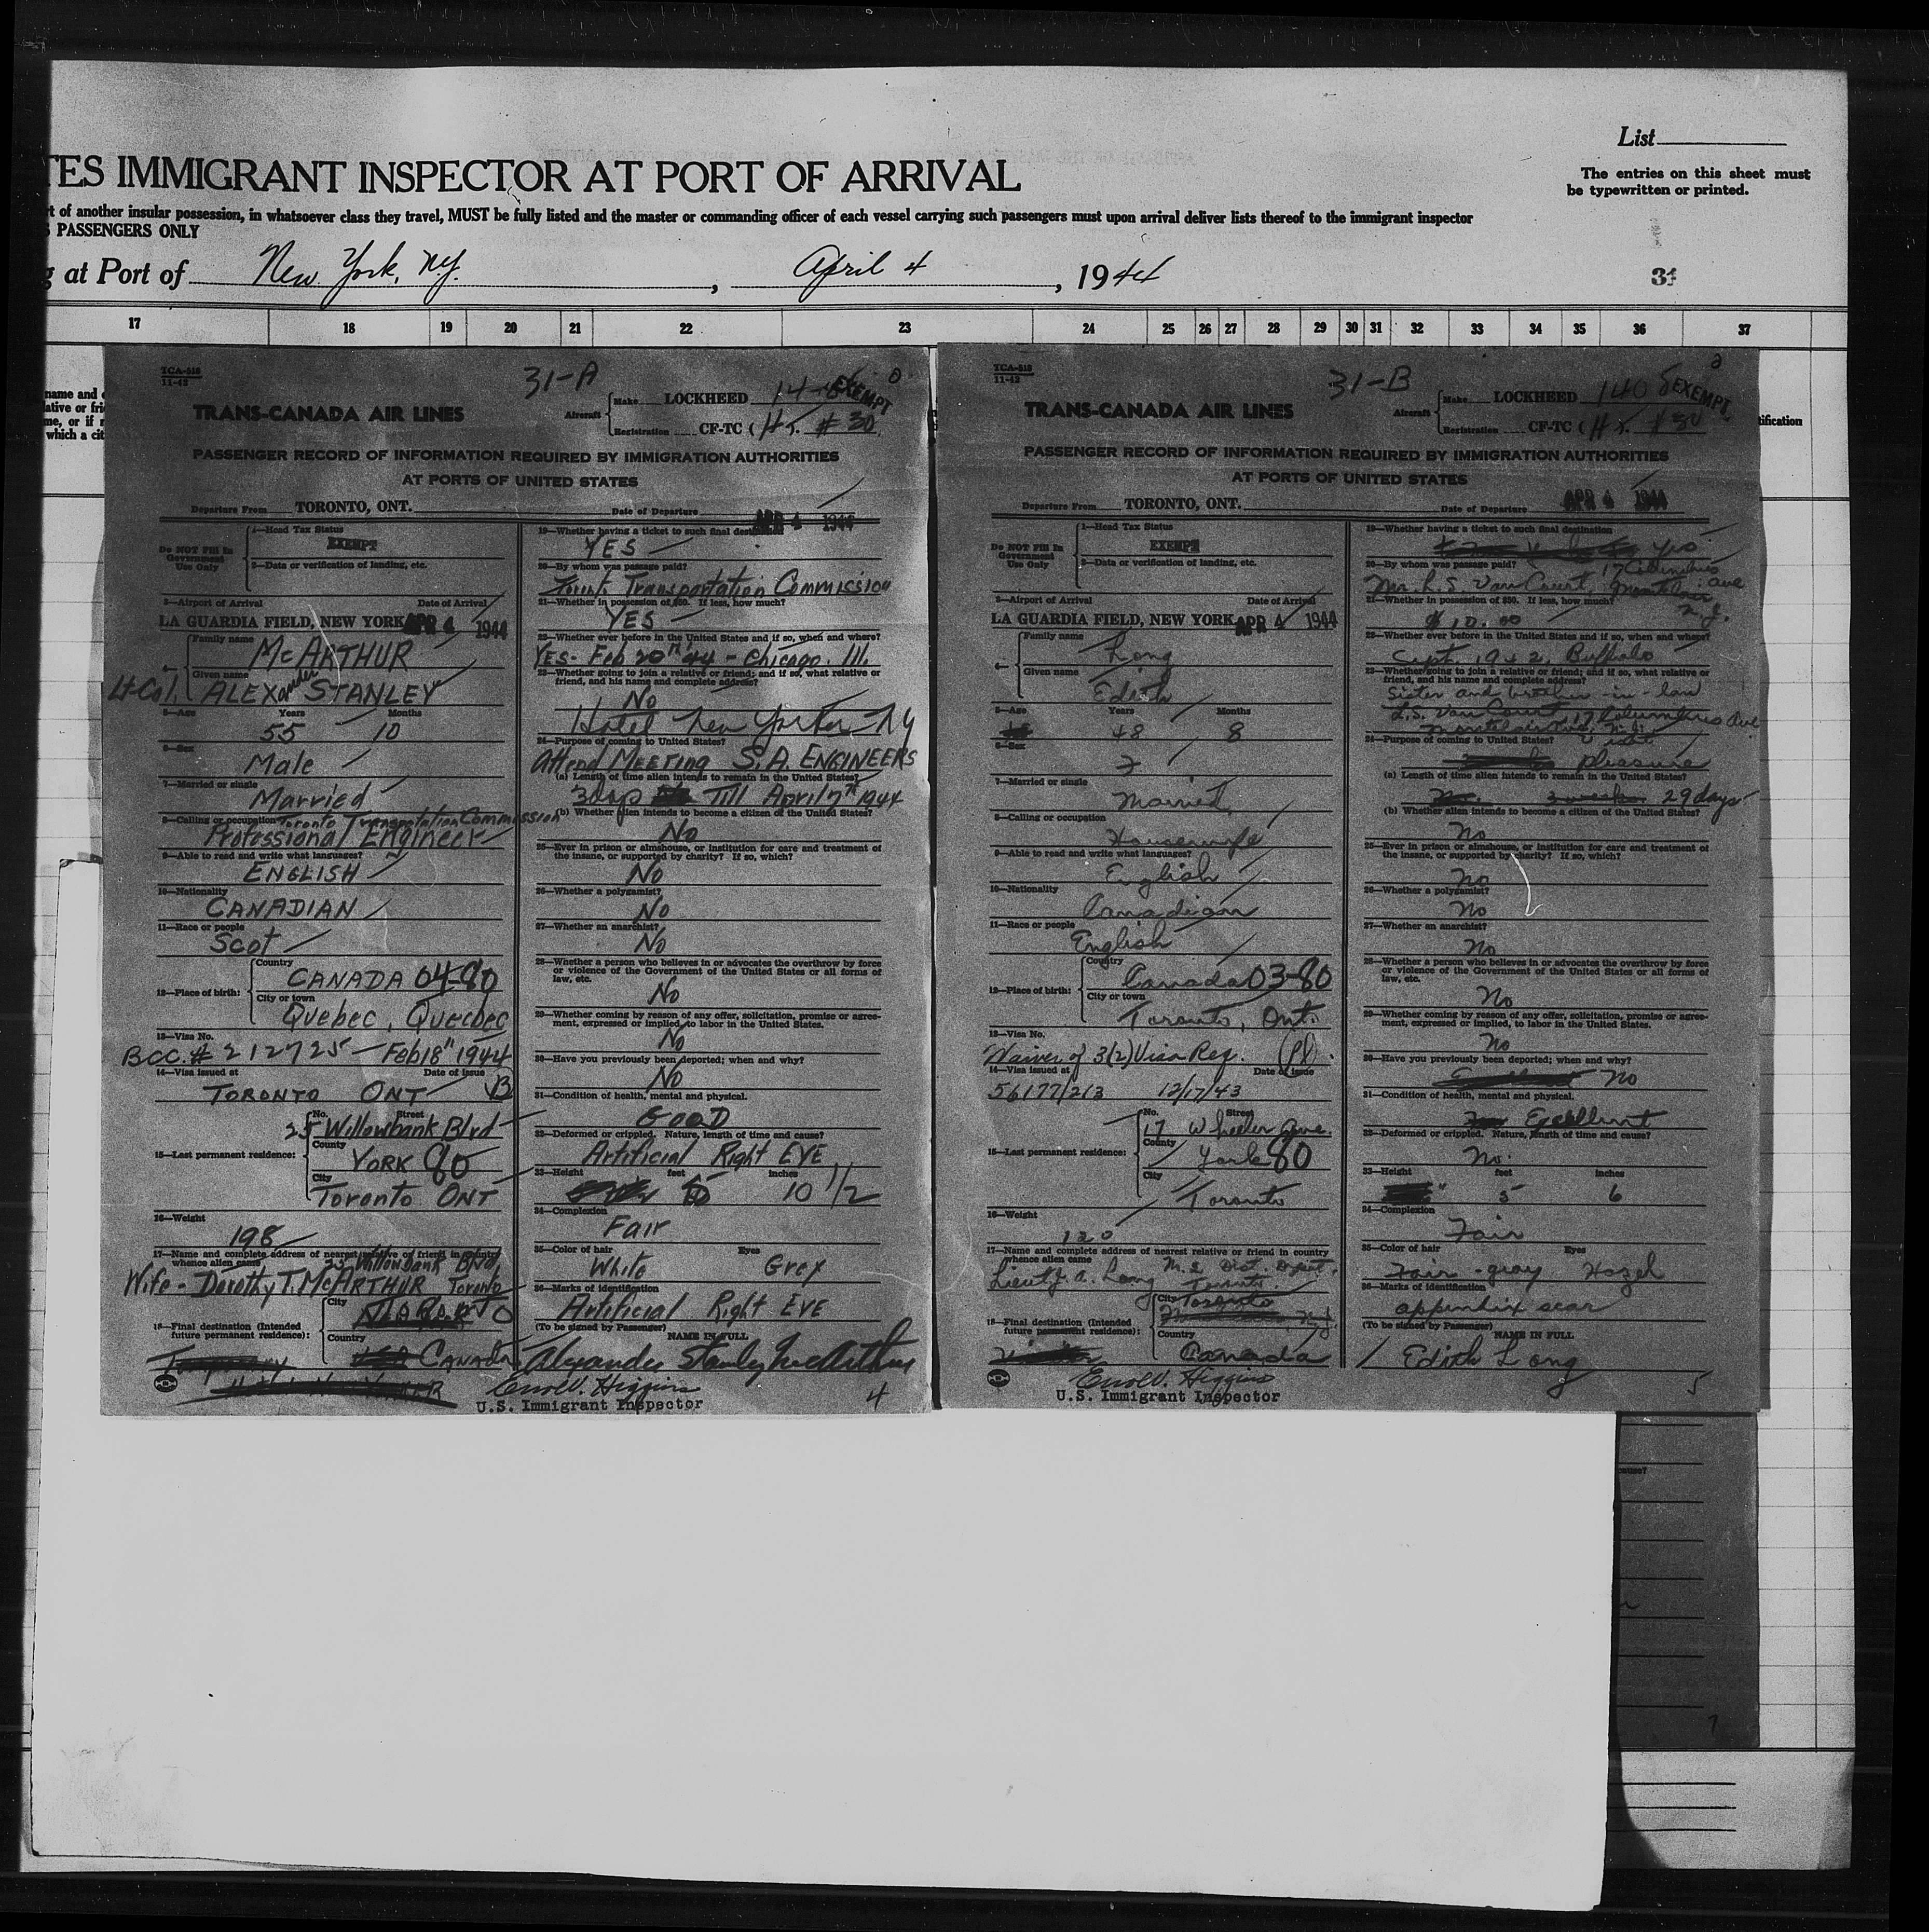 List
TES IMMIGRANT INSPECTOR AT PORT OF ARRIVAL
The entries on this sheet must
be typewritten or printed.
rt of another insular possession, in whatsoever class they travel, MUST be fully listed and the master or commanding officer of each vessel carrying such passengers must upon arrival deliver lists thereof to the immigrant inspector
S PASSENGERS ONLY
g at Port of New York, N.Y. , April 4 , 1944
17 18 19 20 21 22 23 24 25 26 27 28 29 30 31 32 33 34 35 36 37
name and
ative or fri
me, or if
which a cit
TCA-518
11-42
31-A
TRANS-CANADA AIR LINES
Aircraft
Make LOCKHEED EXEMPT
Registration CF-TC ( # 30
PASSENGER RECORD OF INFORMATION REQUIRED BY IMMIGRATION AUTHORITIES
AT PORTS OF UNITED STATES
Departure From TORONTO, ONT. Date of Departure APR 4 1944
1—Head Tax Status
Do NOT Fill In
Government
Use Only
EXEMPT
2—Data or verification of landing, etc.
3—Airport of Arrival Date of Arrival
LA GUARDIA FIELD, NEW YORK APR 4 1944
4— Family name
McARTHUR
Given name
Lt-Col. ALEXander STANLEY
5—Age Years Months
55 10
6—Sex
Male
7—Married or single
Married
8—Calling or occupation Toronto Transportation Commission
Professional Engineer
9—Able to read and write what languages?
ENGLISH
10—Nationality
CANADIAN
11—Race or people
Scot
12—Place of birth:
Country
CANADA 04-80
City or town
Quebec, Quebec
13—Visa No.
BCC. # 212725 — Feb 18" 1944
14—Visa issued at Date of issue
TORONTO ONT B
15—Last permanent residence:
No. Street
25 Willowbank Blvd
County
YORK 80
City
Toronto ONT
16—Weight
198
17—Name and complete address of nearest relative or friend in country
whence alien came 25 Willowbank Blvd,
Wife - Dorothy T. McARTHUR Toronto
18—Final destination (Intended
future permanent residence):
City
Country
CANADA
19—Whether having a ticket to such final destination
YES
20—By whom was passage paid?
Toronto Transportation Commission
21—Whether in possession of $50. If less, how much?
YES
22—Whether ever before in the United States and if so, when and where?
YES - Feb 20th 44 - Chicago. Ill.
23—Whether going to join a relative or friend; and if so, what relative or
friend, and his name and complete address?
No
Hotel New Yorker NY
24—Purpose of coming to United States?
Attend MEETING S.A. ENGINEERS
(a) Length of time alien intends to remain in the United States?
Till April 7th 1944
(b) Whether alien intends to become a citizen of the United States?
No
25—Ever in prison or almshouse, or institution for care and treatment of
the insane, or supported by charity? If so, which?
No
26—Whether a polygamist?
No
27—Whether an anarchist?
No
28—Whether a person who believes in or advocates the overthrow by force
or violence of the Government of the United States or all forms of
law, etc.
No
29—Whether coming by reason of any offer, solicitation, promise or agree-
ment, expressed or implied, to labor in the United States.
No
30—Have you previously been deported; when and why?
No
31—Condition of health, mental and physical.
GOOD
32—Deformed or crippled. Nature, length of time and cause?
Artificial Right EYE
33—Height feet inches
5 10 1/2
34—Complexion
Fair
35—Color of hair Eyes
White Grey
36—Marks of identification
Artificial Right EYE
(To be signed by Passenger)
NAME IN FULL
Alexander Stanley McArthur
Errol V. Higgins
U.S. Immigrant Inspector
4
TCA-518
11-42
31-B
TRANS-CANADA AIR LINES
Aircraft
Make LOCKHEED 1408 EXEMPT
Registration CF-TC (
PASSENGER RECORD OF INFORMATION REQUIRED BY IMMIGRATION AUTHORITIES
AT PORTS OF UNITED STATES
Departure From TORONTO, ONT. Date of Departure APR 4 1944
1—Head Tax Status
Do NOT Fill In
Government
Use Only
EXEMPT
2—Data or verification of landing, etc.
3—Airport of Arrival Date of Arrival
LA GUARDIA FIELD, NEW YORK APR 4 1944
4— Family name
Long
Given name
Edith
5—Age Years Months
48 8
6—Sex
F
7—Married or single
Married
8—Calling or occupation
Housewife
9—Able to read and write what languages?
English
10—Nationality
Canadian
11—Race or people
English
12—Place of birth:
Country
Canada 03-80
City or town
Toronto, Ont.
13—Visa No.
Waiver of 3(2) Visa Req.
14—Visa issued at Date of issue
56177/213 12/17/43
15—Last permanent residence:
No. Street
17 Wheeler Ave.
County
York 80
City
Toronto
16—Weight
120
17—Name and complete address of nearest relative or friend in country
whence alien came M. 2 Dist. Depot,
Lieut J. A. Long Toronto.
18—Final destination (Intended
future permanent residence):
City Toronto
Country
Canada
19—Whether having a ticket to such final destination
Yes
20—By whom was passage paid? 17 Columbus
Mr. L. S. Van Court, Montclair Ave
N. J.
21—Whether in possession of $50. If less, how much?
$10.00
22—Whether ever before in the United States and if so, when and where?
Sept. 1942, Buffalo
23—Whether going to join a relative or friend; and if so, what relative or
friend, and his name and complete address?
Sister and brother-in-law
L.S. Van Court 17 Columbus Ave
24—Purpose of coming to United States? Visit
pleasure
(a) Length of time alien intends to remain in the United States?
3 weeks 29 days
(b) Whether alien intends to become a citizen of the United States?
No
25—Ever in prison or almshouse, or institution for care and treatment of
the insane, or supported by charity? If so, which?
No
26—Whether a polygamist?
No
27—Whether an anarchist?
No
28—Whether a person who believes in or advocates the overthrow by force
or violence of the Government of the United States or all forms of
law, etc.
No
29—Whether coming by reason of any offer, solicitation, promise or agree-
ment, expressed or implied, to labor in the United States.
No
30—Have you previously been deported; when and why?
No
31—Condition of health, mental and physical.
Excellent
32—Deformed or crippled. Nature, length of time and cause?
No.
33—Height feet inches
5 6
34—Complexion
Fair
35—Color of hair Eyes
Fair - gray Hazel
36—Marks of identification
appendix scar
(To be signed by Passenger)
NAME IN FULL
Edith Long
Errol V. Higgins
U.S. Immigrant Inspector
5
tification
cause?
7